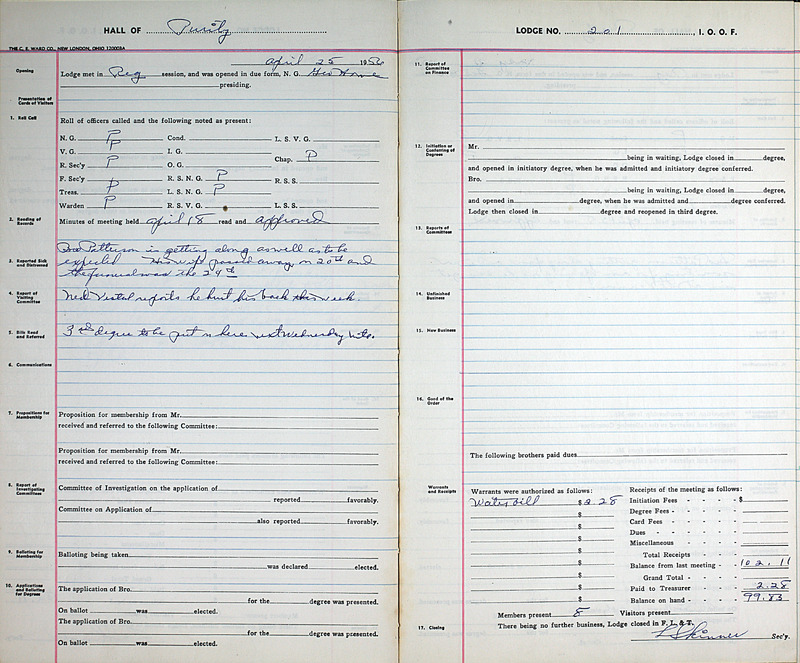 HALL OF Purity
THE C. E. WARD CO., NEW LONDON, OHIO 12000BA
April 25 1956
Opening
Lodge met in Reg session, and was opened in due form, N. G. Geo Horne
presiding.
Presentation of Cards of Visitors
1. Roll Call
Roll of officers called and the following noted as present:
N. G. P Cond. L. S. V. G.
V. G. P I. G. Chap. P
R. Sec'y P O. G.
F. Sec'y P R. S. N. G. P R. S. S.
Treas. L. S. N. G. P
Warden P R. S. V. G. L. S. S.
2. Reading of Records
Minutes of meeting held April 18 read and approved
Bro Patterson is getting along as well as to be
3. Reported Sick and Distressed
expected His wife passed away on 20th and
the funeral was the 24th
4. Report of Visiting Committee
Ned Vestal reports he hurt his back this week.
5. Bills Read and Referred
3rd degree to be put on here next Wednesday nite.
6. Communications
7. Propositions for Membership
Proposition for membership from Mr.
received and referred to the following Committee:
Proposition for membership from Mr.
received and referred to the following Committee:
8. Report of Investigating Committees
Committee of Investigation on the application of
reported favorably.
Committee on Application of
also reported favorably.
9. Balloting for Membership
Balloting being taken
was declared elected.
10. Applications and Balloting for Degrees
The application of Bro.
for the degree was presented.
On ballot was elected.
The application of Bro.
for the degree was presented.
On ballot was elected.
LODGE NO. 201 I. O. O. F.
11. Report of Committee on Finance
12. Initiation or Conferring of Degrees
Mr.
being in waiting, Lodge closed in degree,
and opened in initiatory degree, when he was admitted and initiatory degree conferred.
Bro.
being in waiting, Lodge closed in degree,
and opened in degree, when he was admitted and degree conferred.
Lodge then closed in degree and reopened in third degree.
13. Reports of Committees
14. Unfinished Business
15. New Business
16. Good of the Order
The following brothers paid dues
Warrants and Receipts
Warrants were authorized as follows:
Water bill $ 2.28
$
$
$
$
$
$
$
Receipts of the meeting as follows:
Initiation Fees - - - $
Degree Fees - - - -
Card Fees - - - -
Dues - - - - -
Miscellaneous - - - -
Total Receipts - -
Balance from last meeting - 102.11
Grand Total - - -
Paid to Treasurer - - 2.28
Balance on hand - - 99.83
Members present 8 Visitors present
17. Closing
There being no further business, Lodge closed in F. L. & T.
Skinner Sec'y.